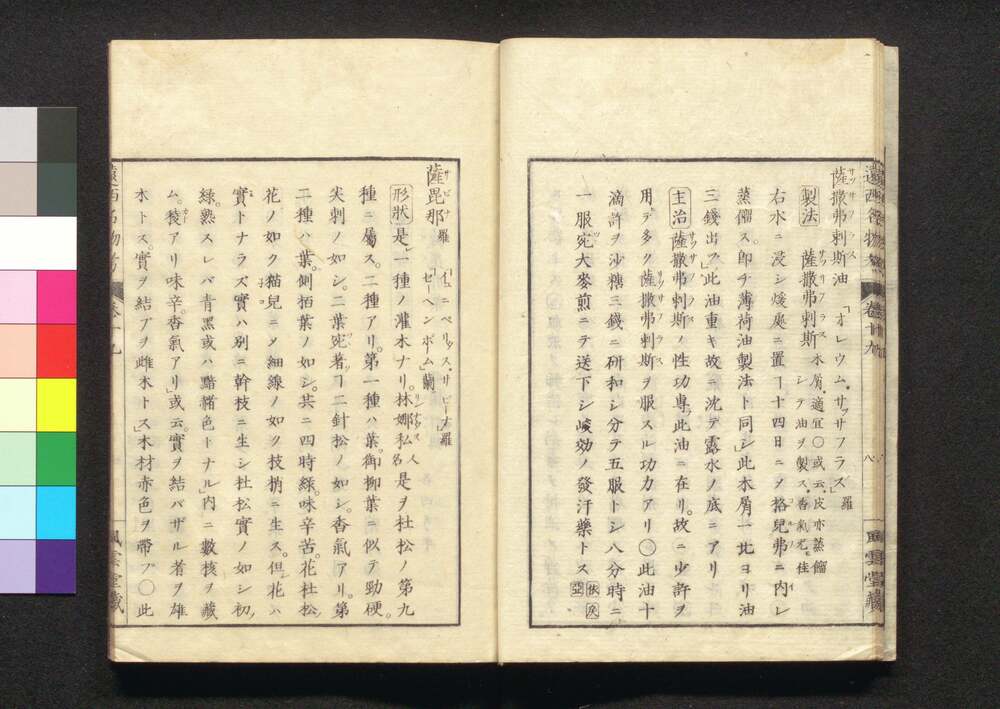 薩撒弗剌斯油 「オレウム、サッサフラス」羅
製法 薩撒弗剌斯 木屑適宜〇或云、皮亦蒸餾シテ油ヲ製ス、香氣尤佳
右水ニ浸シ煖處ニ置ヿ十四日ニ〆格兒弗ニ内レ
蒸餾ス。卽チ薄荷油製法ト同シ」此木屑一比ヨリ油
三錢出ヅ」此油重キ故ニ沈テ露水ノ底ニアリ
主治 薩撒弗剌斯ノ性功專ラ此油ニ在リ。故ニ少許ヲ
用テ多ク薩撒弗剌斯ヲ服スル功力アリ〇此油十
滴許ヲ沙糖三錢ニ研和シ分テ五服トシ八分時ニ
一服宛大麥煎ニテ送下シ峻効ノ發汗藥トス
遠西名物考
卷十九
八
風雲堂藏
薩毘那 羅 「イユニペリュス、サビーナ」羅 「セーヘンボーム」蘭
形狀 是レ一種ノ灌木ナリ。林娜私人名是ヲ杜松ノ第九
種ニ屬ス。二種アリ。第一種ハ葉。御柳葉ニ似テ勁梗。
尖刺ノ如シ。二葉宛著ヿ二針松ノ如シ。香氣アリ。第
二種ハ葉。側栢葉ノ如シ。共ニ四時綠。味辛苦。花杜松
花ノ如ク猫兒ニ〆細線ノ如ク枝梢ニ生ス。但花ハ
實トナラズ實ハ別ニ幹枝ニ生シ杜松實ノ如シ初
綠。熟スレバ青黑或ハ黯緇色トナル」内ニ數核ヲ藏
ム。稜アリ味辛。香氣アリ」或云。實ヲ結バザル者ヲ雄
木トス。實ヲ結ブヲ雌木トス」木材赤色ヲ帶ブ〇此
遠西名物考
卷十九
風雲堂藏